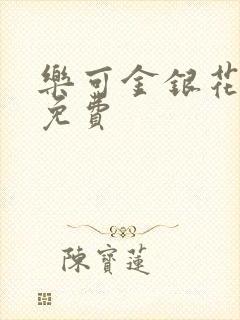 樂可金銀花
免費
陳寶蓮